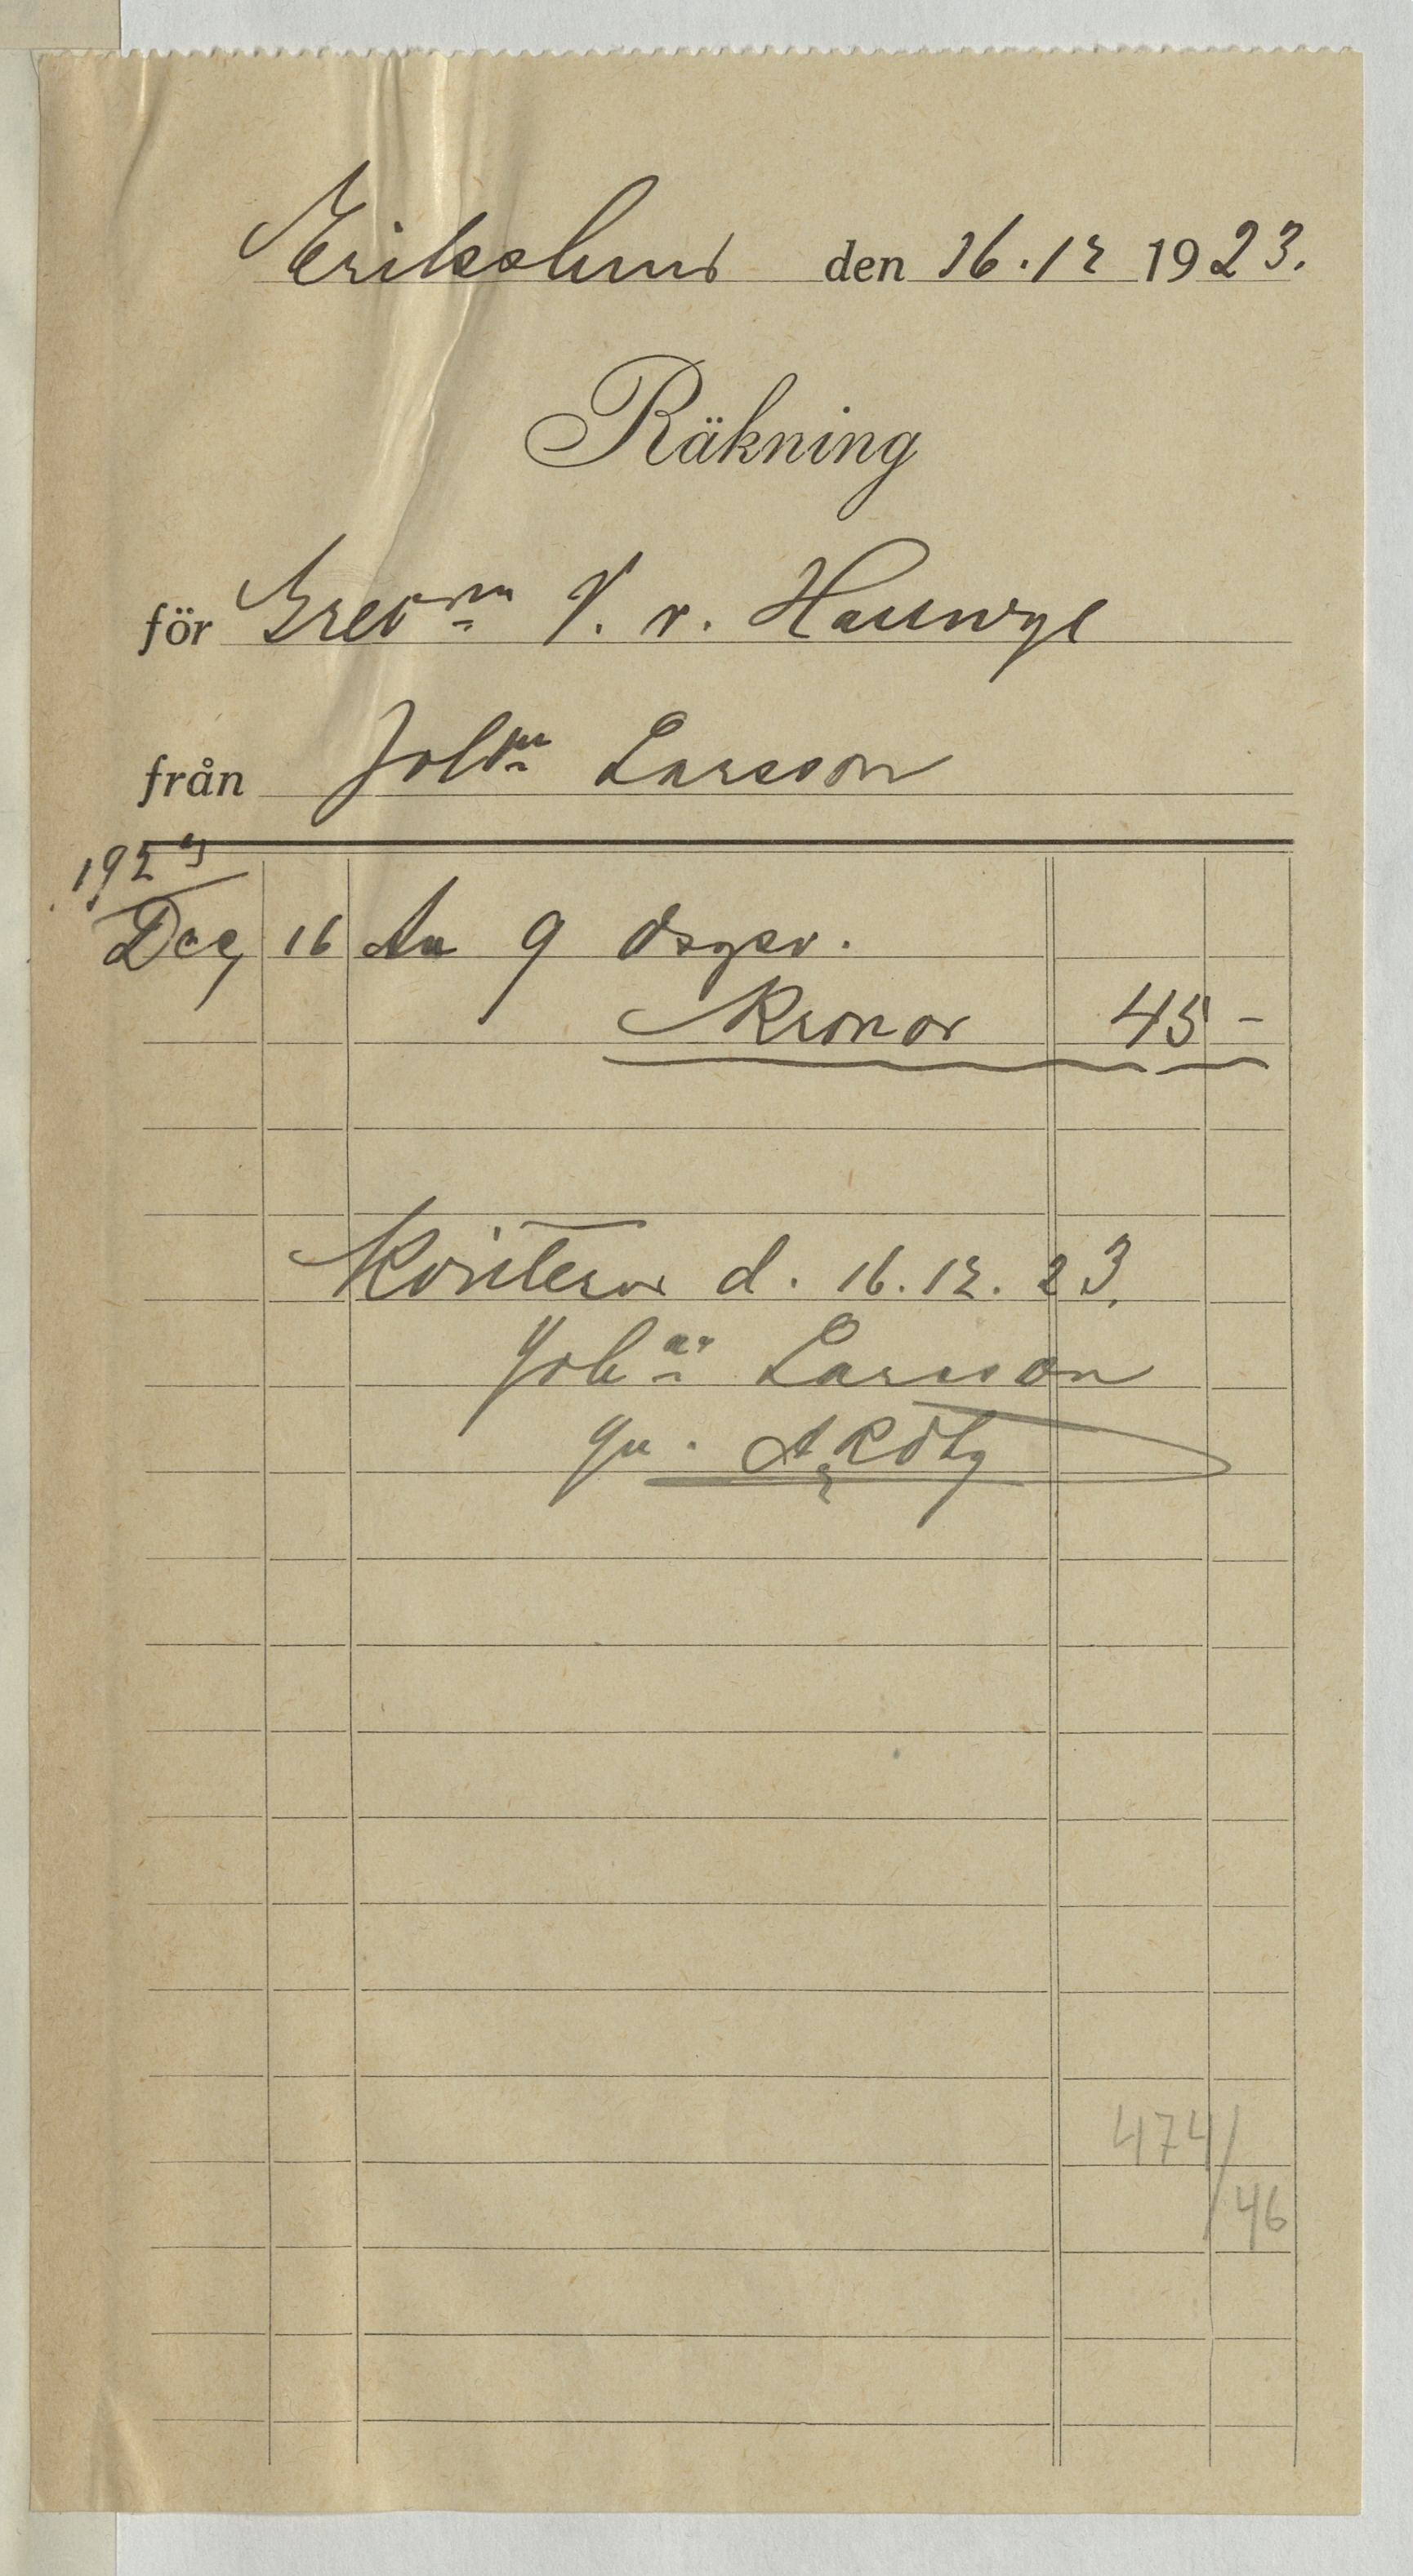 Erikslund den 16.12 1923.
Räkning
för Grevinn V. v. Hallwyl
från Johan Larsson
1923
Dec 16 An 9 dagsv.
Kronor 45 -
Kviteras d. 16.12.23.
Johan Larsson
gm.
474/
46